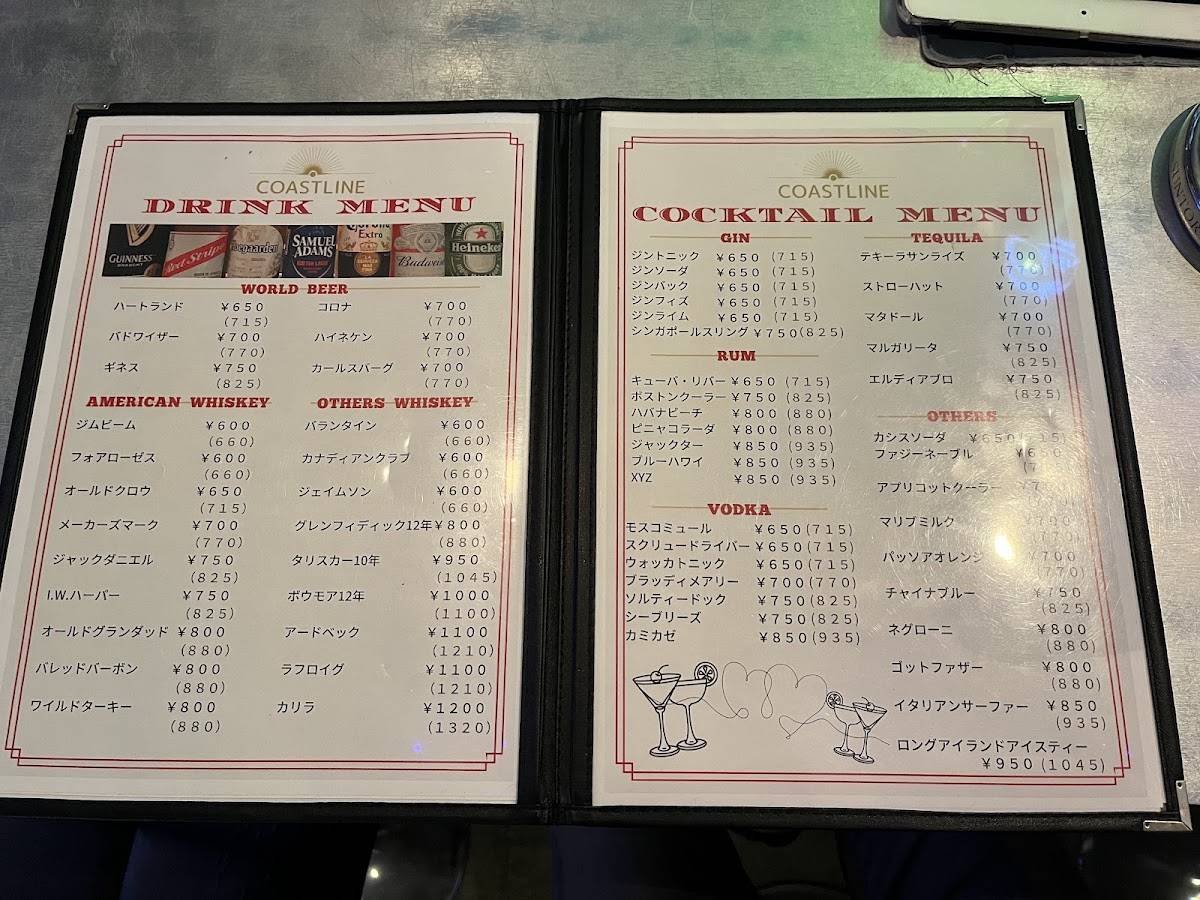 COASTLINE
DRINK MENU
GUINNESS
DRAUGHT
Red Stripe
Hoegaarden
SAMUEL
ADAMS
Corona
Extra
Budweis
Heineken
WORLD BEER
ハートランド ¥650
(715)
バドワイザー ¥700
(770)
ギネス ¥750
(825)
コロナ ¥700
(770)
ハイネケン ¥700
(770)
カールスバーグ ¥700
(770)
AMERICAN WHISKEY
ジムビーム ¥600
(660)
フォアローゼス ¥600
(660)
オールドクロウ ¥650
(715)
メーカーズマーク ¥700
(770)
ジャックダニエル ¥750
(825)
I.W.ハーパー ¥750
(825)
オールドグランダッド ¥800
(880)
バレッドバーボン ¥800
(880)
ワイルドターキー ¥800
(880)
OTHERS WHISKEY
バランタイン ¥600
(660)
カナディアンクラブ ¥600
(660)
ジェイムソン ¥600
(660)
グレンフィディック12年 ¥800
(880)
タリスカー10年 ¥950
(1045)
ボウモア12年 ¥1000
(1100)
アードベック ¥1100
(1210)
ラフロイグ ¥1100
(1210)
カリラ ¥1200
(1320)
COASTLINE
COCKTAIL MENU
GIN
ジントニック ¥650 (715)
ジンソーダ ¥650 (715)
ジンバック ¥650 (715)
ジンフィズ ¥650 (715)
ジンライム ¥650 (715)
シンガポールスリング ¥750(825)
RUM
キューバ・リバー ¥650 (715)
ボストンクーラー ¥750 (825)
ハバナピーチ ¥800 (880)
ピニャコラーダ ¥800 (880)
ジャックター ¥850 (935)
ブルーハワイ ¥850 (935)
XYZ ¥850 (935)
VODKA
モスコミュール ¥650(715)
スクリュードライバー ¥650(715)
ウォッカトニック ¥650(715)
ブラッディメアリー ¥700(770)
ソルティードック ¥750(825)
シーブリーズ ¥750(825)
カミカゼ ¥850(935)
TEQUILA
テキーラサンライズ ¥700
(770)
ストローハット ¥700
(770)
マタドール ¥700
(770)
マルガリータ ¥750
(825)
エルディアブロ ¥750
(825)
OTHERS
カシスソーダ ¥650(715)
ファジーネーブル ¥650
アプリコットクーラー
マリブミルク
パッソアオレンジ ¥700
(770)
チャイナブルー ¥750
(825)
ネグローニ ¥800
(880)
ゴットファザー ¥800
(880)
イタリアンサーファー ¥850
(935)
ロングアイランドアイスティー
¥950(1045)